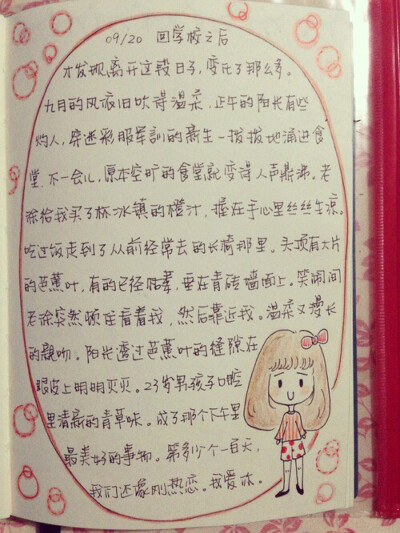 09/20 回学校之后
才发现离开这段日子，变化了那么多。
九月的风依旧吹得温柔，正午的阳光有些
灼人，穿迷彩服军训的新生一拨拨地涌进食
堂，不一会儿，原本空旷的食堂就变得人声鼎沸。老
徐给我买了杯冰镇的橙汁，握在手心里丝丝生凉。
吃过饭走到了从前经常去的长椅那里。头顶有大片
的芭蕉叶，有的已经枯萎，垂在青砖墙面上。笑闹间
老徐突然顿住看着我，然后靠近我。温柔又漫长
的亲吻。阳光透过芭蕉叶的缝隙在
眼皮上明明灭灭。23岁男孩子口腔
里清新的青草味。成了那个下午里
最美好的事物。第多少个一百天，
我们还像刚热恋。我爱你。